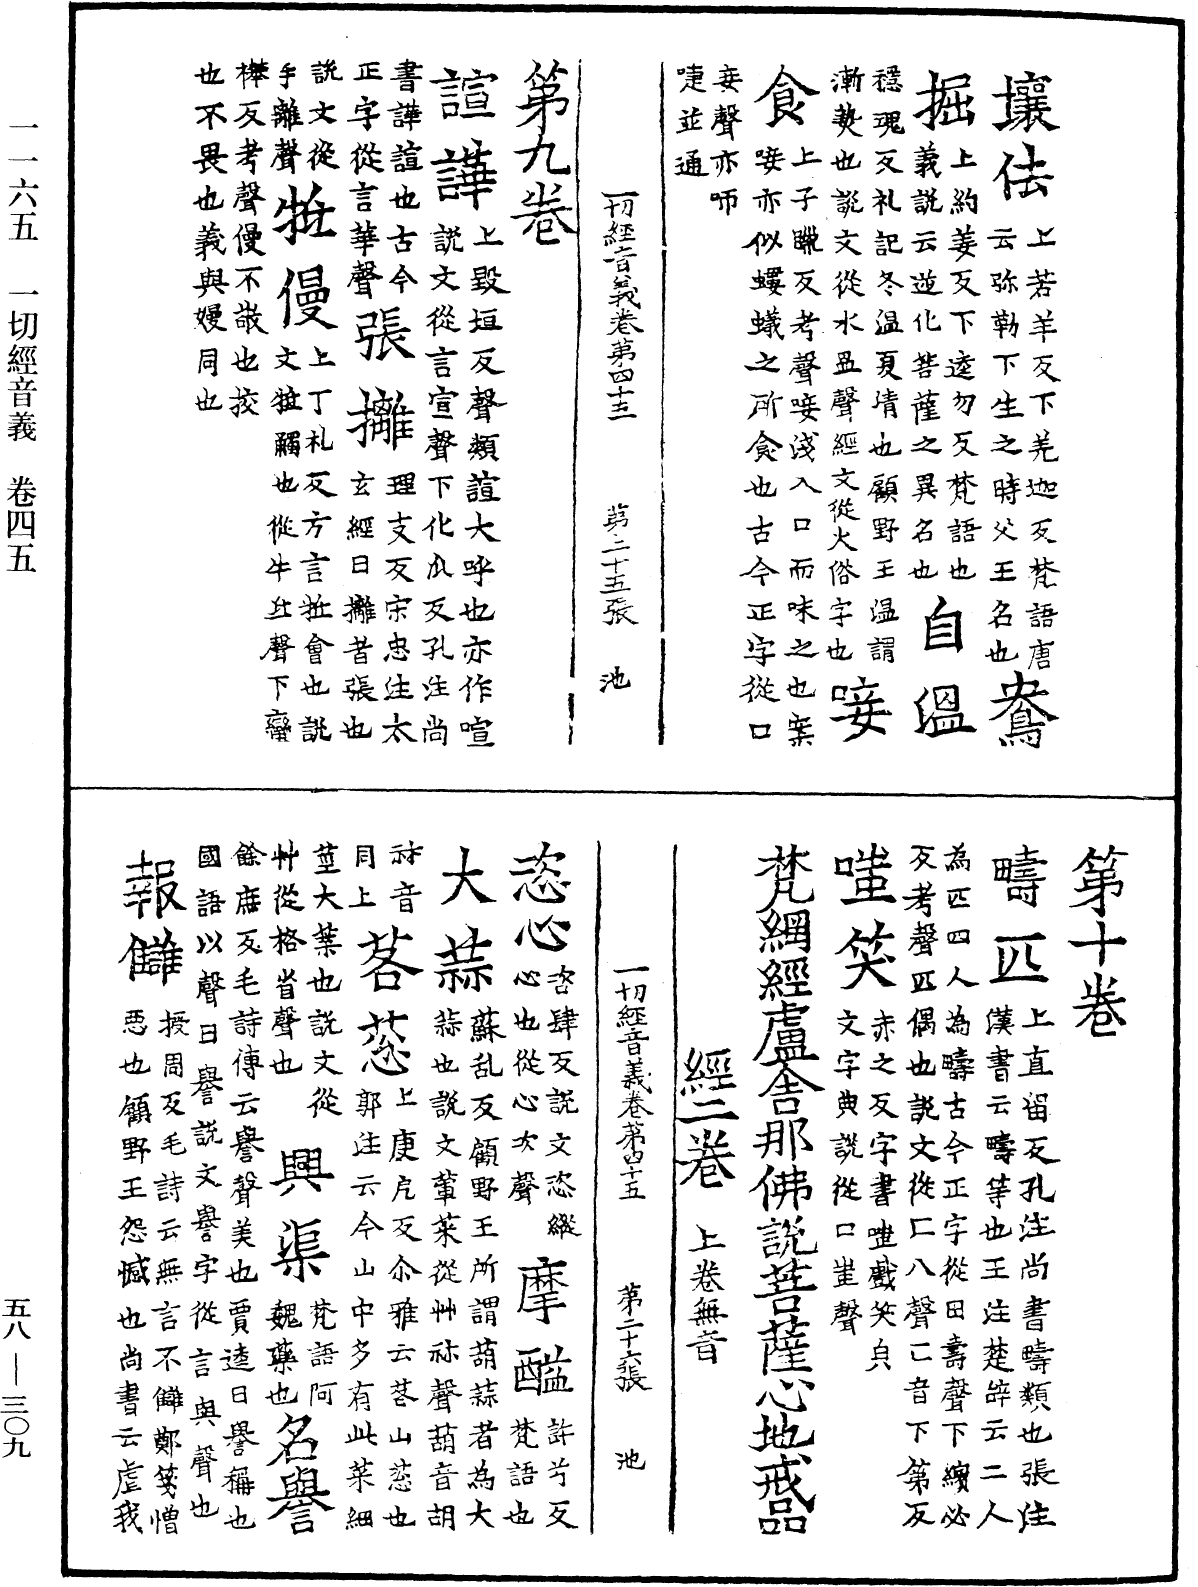 壤佉上若羊反下羌迦反梵語唐云弥勒下生之時父王名也鴦
掘上約姜反下逵勿反梵語也義說云逆化菩薩之異名也自溫
穩䰟反礼記冬温夏凊也顧野王温謂漸𤍽也說文從水𥁕聲經文從火俗字也唼
食上子臘反考聲唼淺入口而味之也案唼亦似螻蟻之所食也古今正字從口
妾聲亦咂啑並通
一切經音義卷第四十五 第二十五張 池
第九卷
諠譁上毀垣反聲類諠大呼也亦作喧說文從言宣聲下化瓜反孔注尚
書譁諠也古今正字從言華聲張攡理支反宋忠注太玄經曰攡者張也
說文從手離聲牴僈上丁礼反方言牴會也說文牴觸也從牛氐聲下蠻
襻反考聲僈不敬也也不畏也義與嫚同也
第十卷
疇匹上直留反孔注尚書疇類也張注漢書云疇等也王注楚辞云二人
為匹四人為疇古今正字從田壽聲下繽必反考聲匹偶也說文從匚八聲匚音下第反
嗤笑赤之反字書嗤戲笑皃文字典說從口蚩聲
梵網經盧舍那佛說菩薩心地戒品
經二卷 上卷無音
一切經音義卷第四十五 第二十六張 池
恣心咨肆反說文恣縱心也從心次聲摩醯許兮反梵語也
大蒜蘇乱反顧野王所謂葫蒜者為大蒜也說文葷菜從艸祘聲葫音胡
祘音同上茖葱上庚戹反尒雅云茖山葱也郭注云今山中多有此菜細
莖大葉也說文從艸從格省聲也興渠梵語阿魏藥也名譽
餘庶反毛詩傳云譽聲美也賈逵曰譽稱也國語以聲曰譽說文譽字從言與聲也
報讎授周反毛詩云無言不讎鄭箋憎惡也顧野王怨憾也尚書云虐我
一一六五 一切經音義 卷四五
五八—三〇九